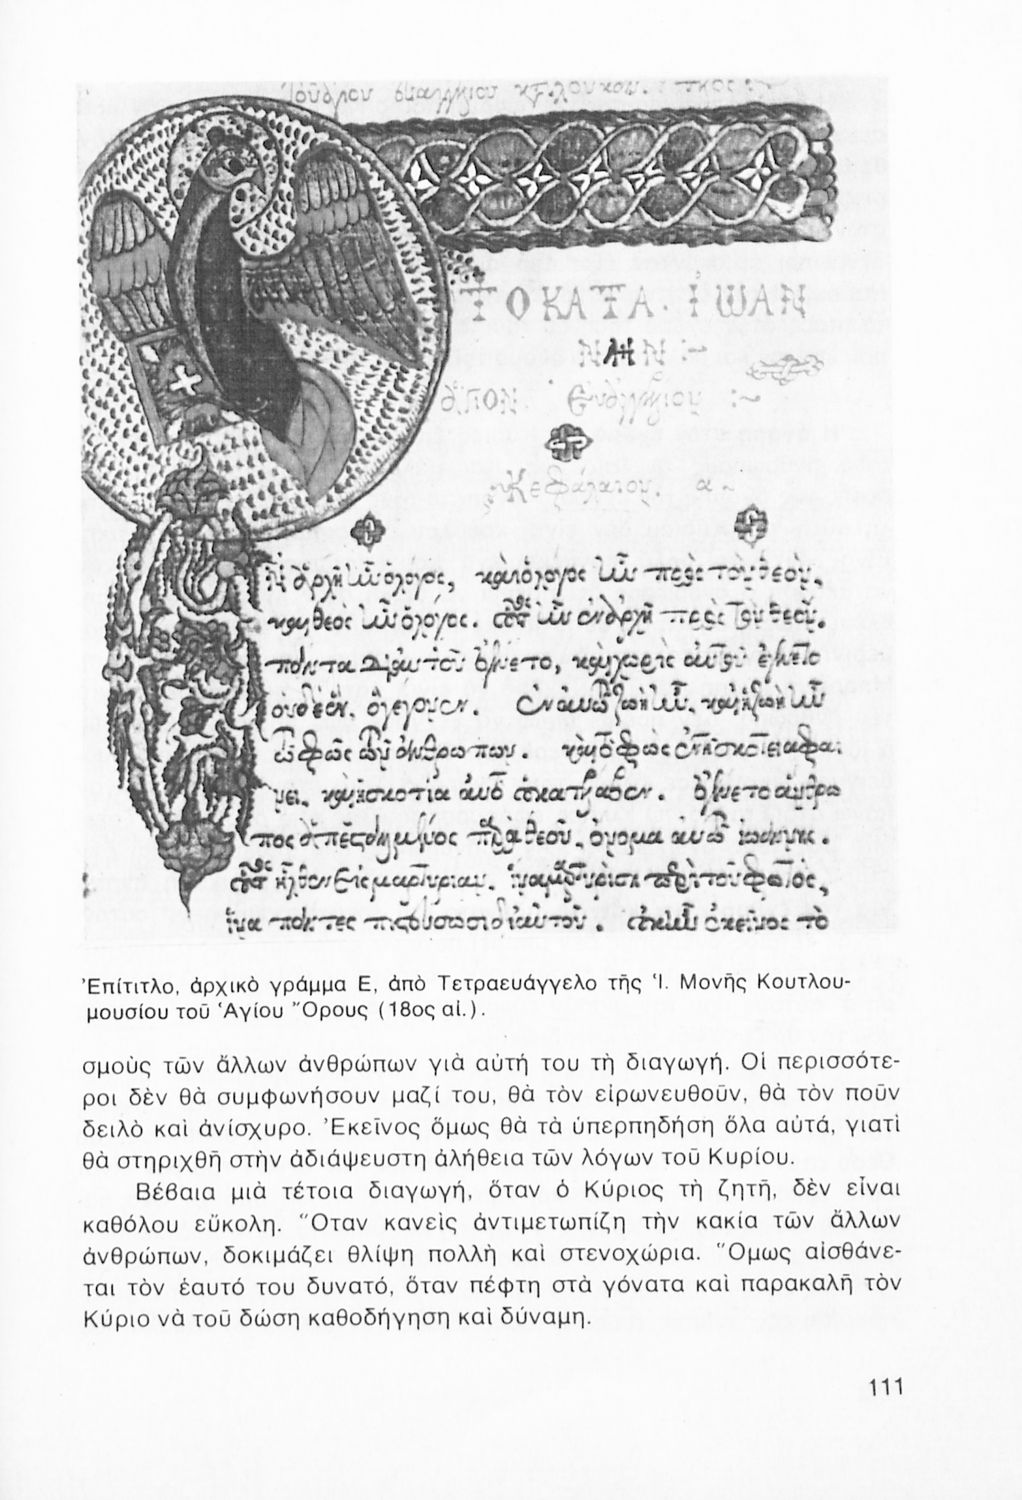 ΤΟ ΚΑΤΑ ΙΩΑΝ
ΝΗΝ :~
ἅγιον Εὐαγγέλιον :~
Κεφάλαιον. α ~
Ἐν ἀρχῇ ἦν ὁ λόγος, καὶ ὁ λόγος ἦν πρὸς τὸν θεὸν,
καὶ θεὸς ἦν ὁ λόγος. οὗτος ἦν ἐν ἀρχῇ πρὸς τὸν θεόν.
πάντα δι' αὐτοῦ ἐγένετο, καὶ χωρὶς αὐτοῦ ἐγένετο
οὐδὲ ἕν, ὃ γέγονεν. Ἐν αὐτῷ ζωὴ ἦν, καὶ ἡ ζωὴ ἦν
τὸ φῶς τῶν ἀνθρώπων. καὶ τὸ φῶς ἐν τῇ σκοτίᾳ φαί
νει, καὶ ἡ σκοτία αὐτὸ οὐ κατέλαβεν. Ἐγένετο ἄνθρω
πος ἀπεσταλμένος παρὰ θεοῦ, ὄνομα αὐτῷ ἰωάννης.
οὗτος ἦλθεν εἰς μαρτυρίαν, ἵνα μαρτυρήσῃ περὶ τοῦ φωτὸς,
ἵνα πάντες πιστεύσωσι δι' αὐτοῦ. οὐκ ἦν ἐκεῖνος τὸ
Ἐπίτιτλο, ἀρχικὸ γράμμα Ε, ἀπὸ Τετραευάγγελο τῆς Ἱ. Μονῆς Κουτλου-
μουσίου τοῦ Ἁγίου Ὄρους (18ος αἰ.).
σμοὺς τῶν ἄλλων ἀνθρώπων γιὰ αὐτή του τὴ διαγωγή. Οἱ περισσότε-
ροι δὲν θὰ συμφωνήσουν μαζί του, θὰ τὸν εἰρωνευθοῦν, θὰ τὸν ποῦν
δειλὸ καὶ ἀνίσχυρο. Ἐκεῖνος ὅμως θὰ τὰ ὑπερπηδήση ὅλα αὐτά, γιατὶ
θὰ στηριχθῆ στὴν ἀδιάψευστη ἀλήθεια τῶν λόγων τοῦ Κυρίου.
Βέβαια μιὰ τέτοια διαγωγή, ὅταν ὁ Κύριος τὴ ζητῆ, δὲν εἶναι
καθόλου εὔκολη. Ὅταν κανεὶς ἀντιμετωπίζη τὴν κακία τῶν ἄλλων
ἀνθρώπων, δοκιμάζει θλίψη πολλὴ καὶ στενοχώρια. Ὅμως αἰσθάνε-
ται τὸν ἑαυτό του δυνατό, ὅταν πέφτη στὰ γόνατα καὶ παρακαλῆ τὸν
Κύριο νὰ τοῦ δώση καθοδήγηση καὶ δύναμη.
111